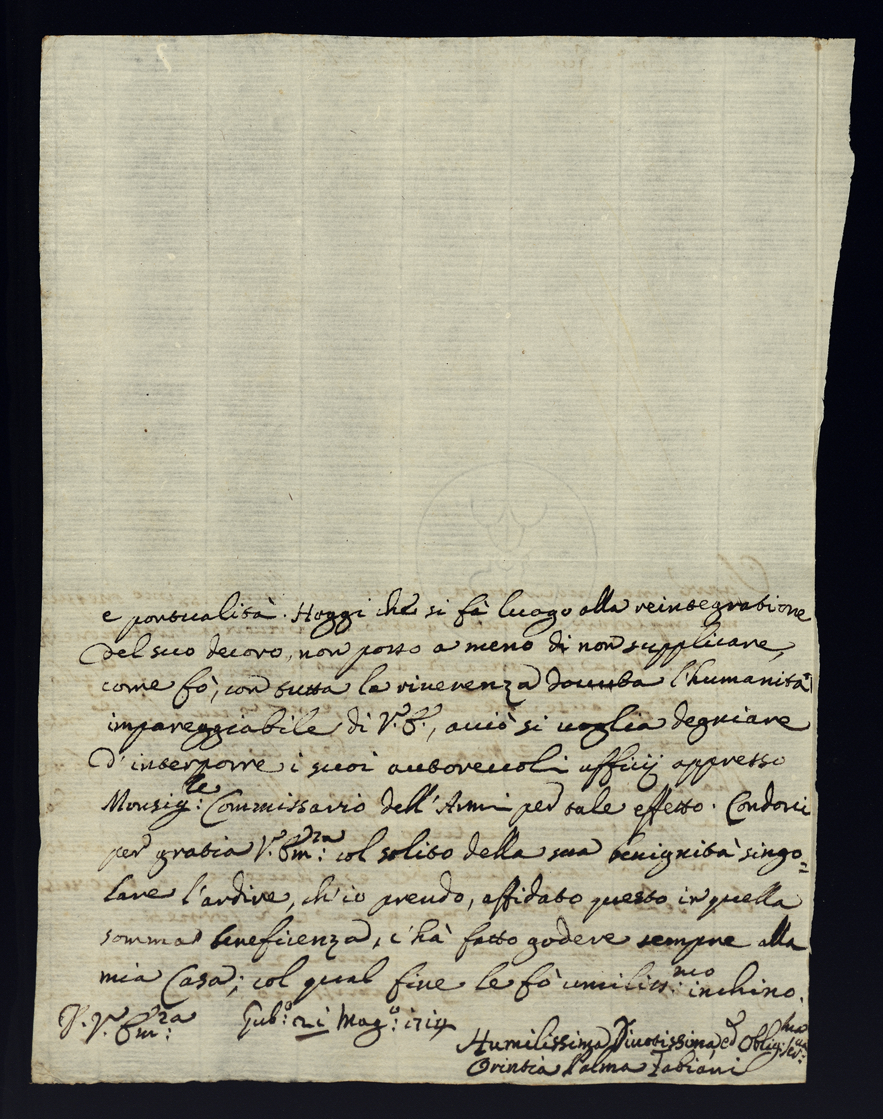 e pontualità. Hoggi che si fà luogo alla reintegratione
del suo decoro, non posso a meno di non supplicare,
come fò, con tutta la riverenza dovuta l'humanità
impareggiabile di V.ª E., acciò si voglia degniare
d'interporre i suoi autorevoli ufficij appresso
Monsig.le Commissario dell'Armi per tale effetto. Condoni
per gratia V.ª Em.za col solito della sua benignità singo=
lare l'ardire, ch'io prendo, affidato questo in quella
somma beneficenza, c'hà fatto godere sempre alla
mia Casa; col qual fine le fò umiliss.mo inchino.
D. V.ª Em.za Gub.o 21 Mag.o 1714
Humilissima Divotissima, ed Oblig.ma Ser.va
Orintia Palma Fabiani